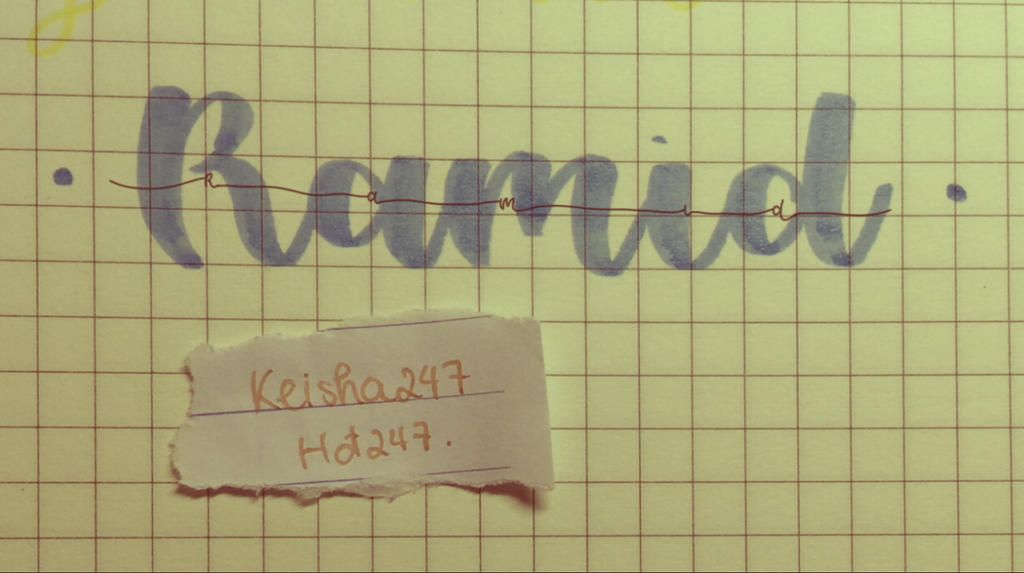 Ramid
R a m i d
Keisha247
Hot247.